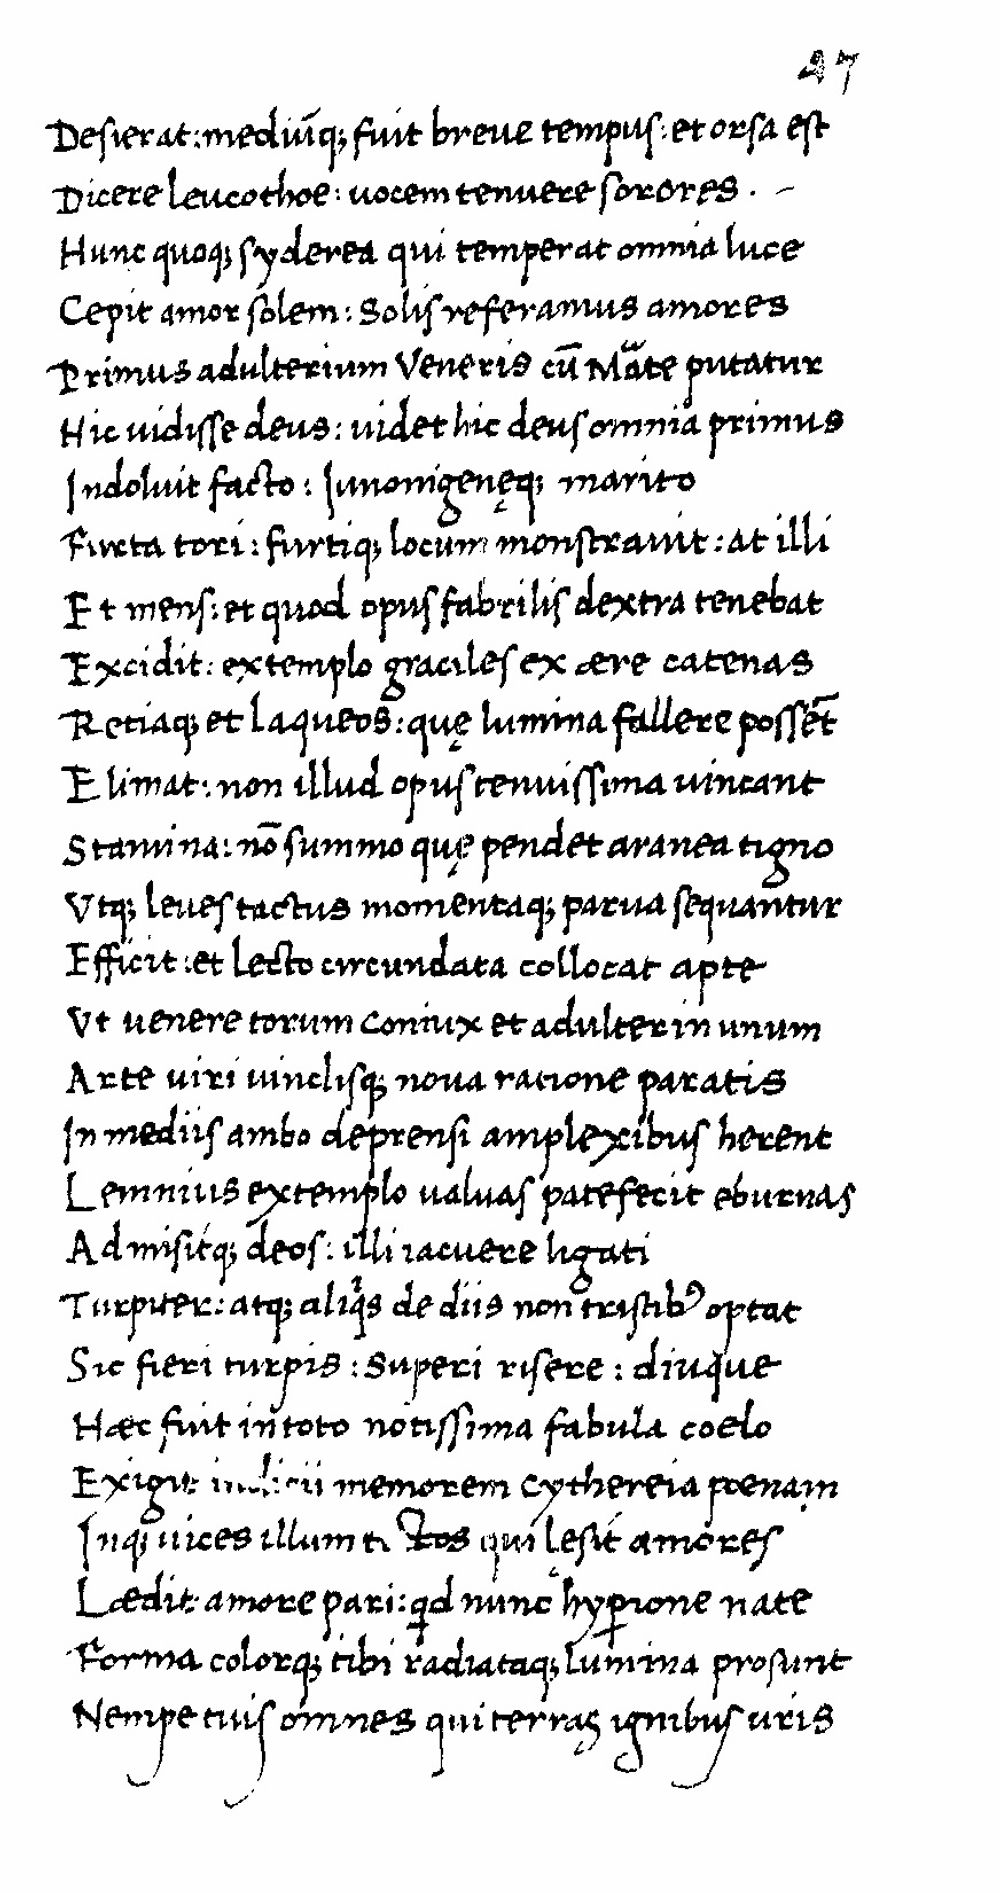 27
Desierat: mediu̅q; fuit breue tempus: et orsa est
Dicere leucothoe: uocem tenuere sorores.
Hunc quoq; syderea qui temperat omnia luce
Cepit amor solem: Solis referamus amores
Primus adulterium Veneris cu̅ Ma̅te putatur
Hic uidisse deus: uidet hic deus omnia primus
Indoluit facto: Iunonigenęq; marito
Furta tori: furtiq; locum monstrauit: at illi
Et mens: et quod opus fabrilis dextra tenebat
Excidit: extemplo graciles ex ære catenas
Retiaq; et laqueos: quę lumina fallere posse̅t
Elimat: non illud opus tenuissima uincant
Stamina: no̅ summo quę pendet aranea tigno
Vtq; leues tactus momentaq; parua sequantur
Efficit: et lecto circundata collocat apte
Vt uenere torum coniux et adulter in unum
Arte uiri uinclisq; noua ratione paratis
In mediis ambo deprensi amplexibus herent
Lemnius extemplo ualuas patefecit eburnas
Admisitq; deos: illi iacuere ligati
Turpiter: atq; aliq̍s de diis non tristib⁹ optat
Sic fieri turpis: superi risere: diuque
Hæc fuit in toto notissima fabula coelo
Exigit indicii memorem cythereia pœnam
Inq; uices illum qui lęsit amores
Lædit amore pari: qd nunc hyꝑione nate
Forma colorq; tibi radiataq; lumina prosunt
Nempe tuis omnes qui terras ignibus uris